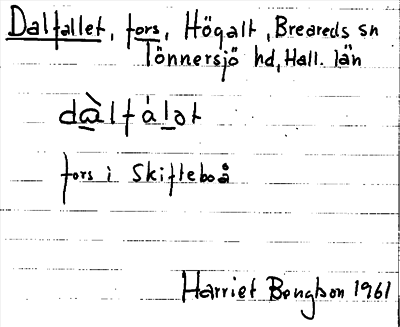 Dalfallet, fors, Högalt, Breareds sn
Tönnersjö hd, Hall. län
dàlfálət
fors i Skifteboå
Harriet Bengtson 1961